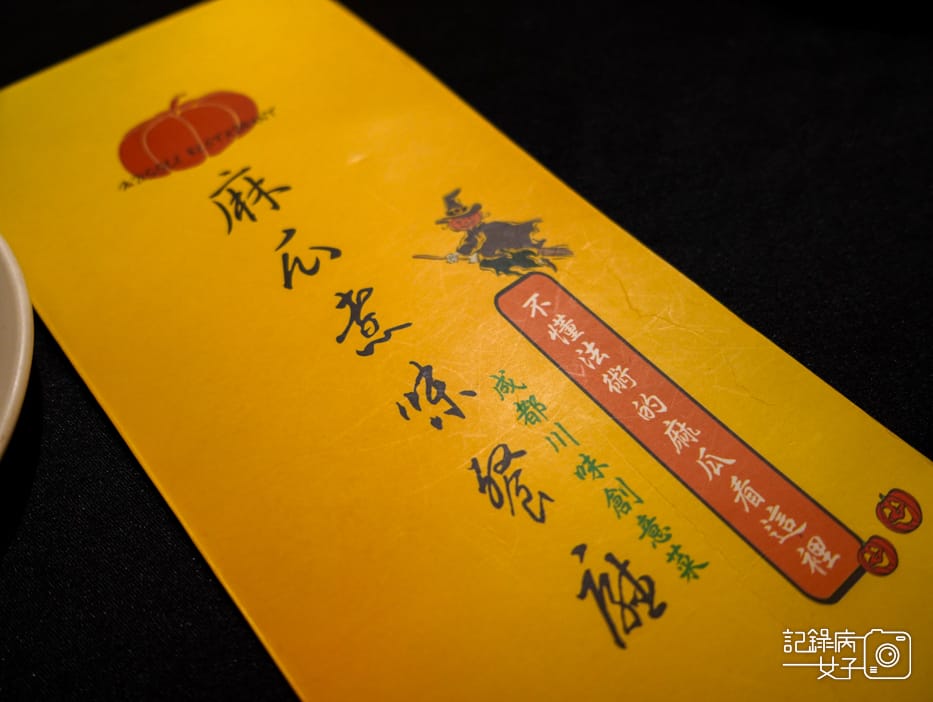 麻瓜煮味餐廳
不懂法術的麻瓜看這裡
成都川味創意菜
記錄病
女子